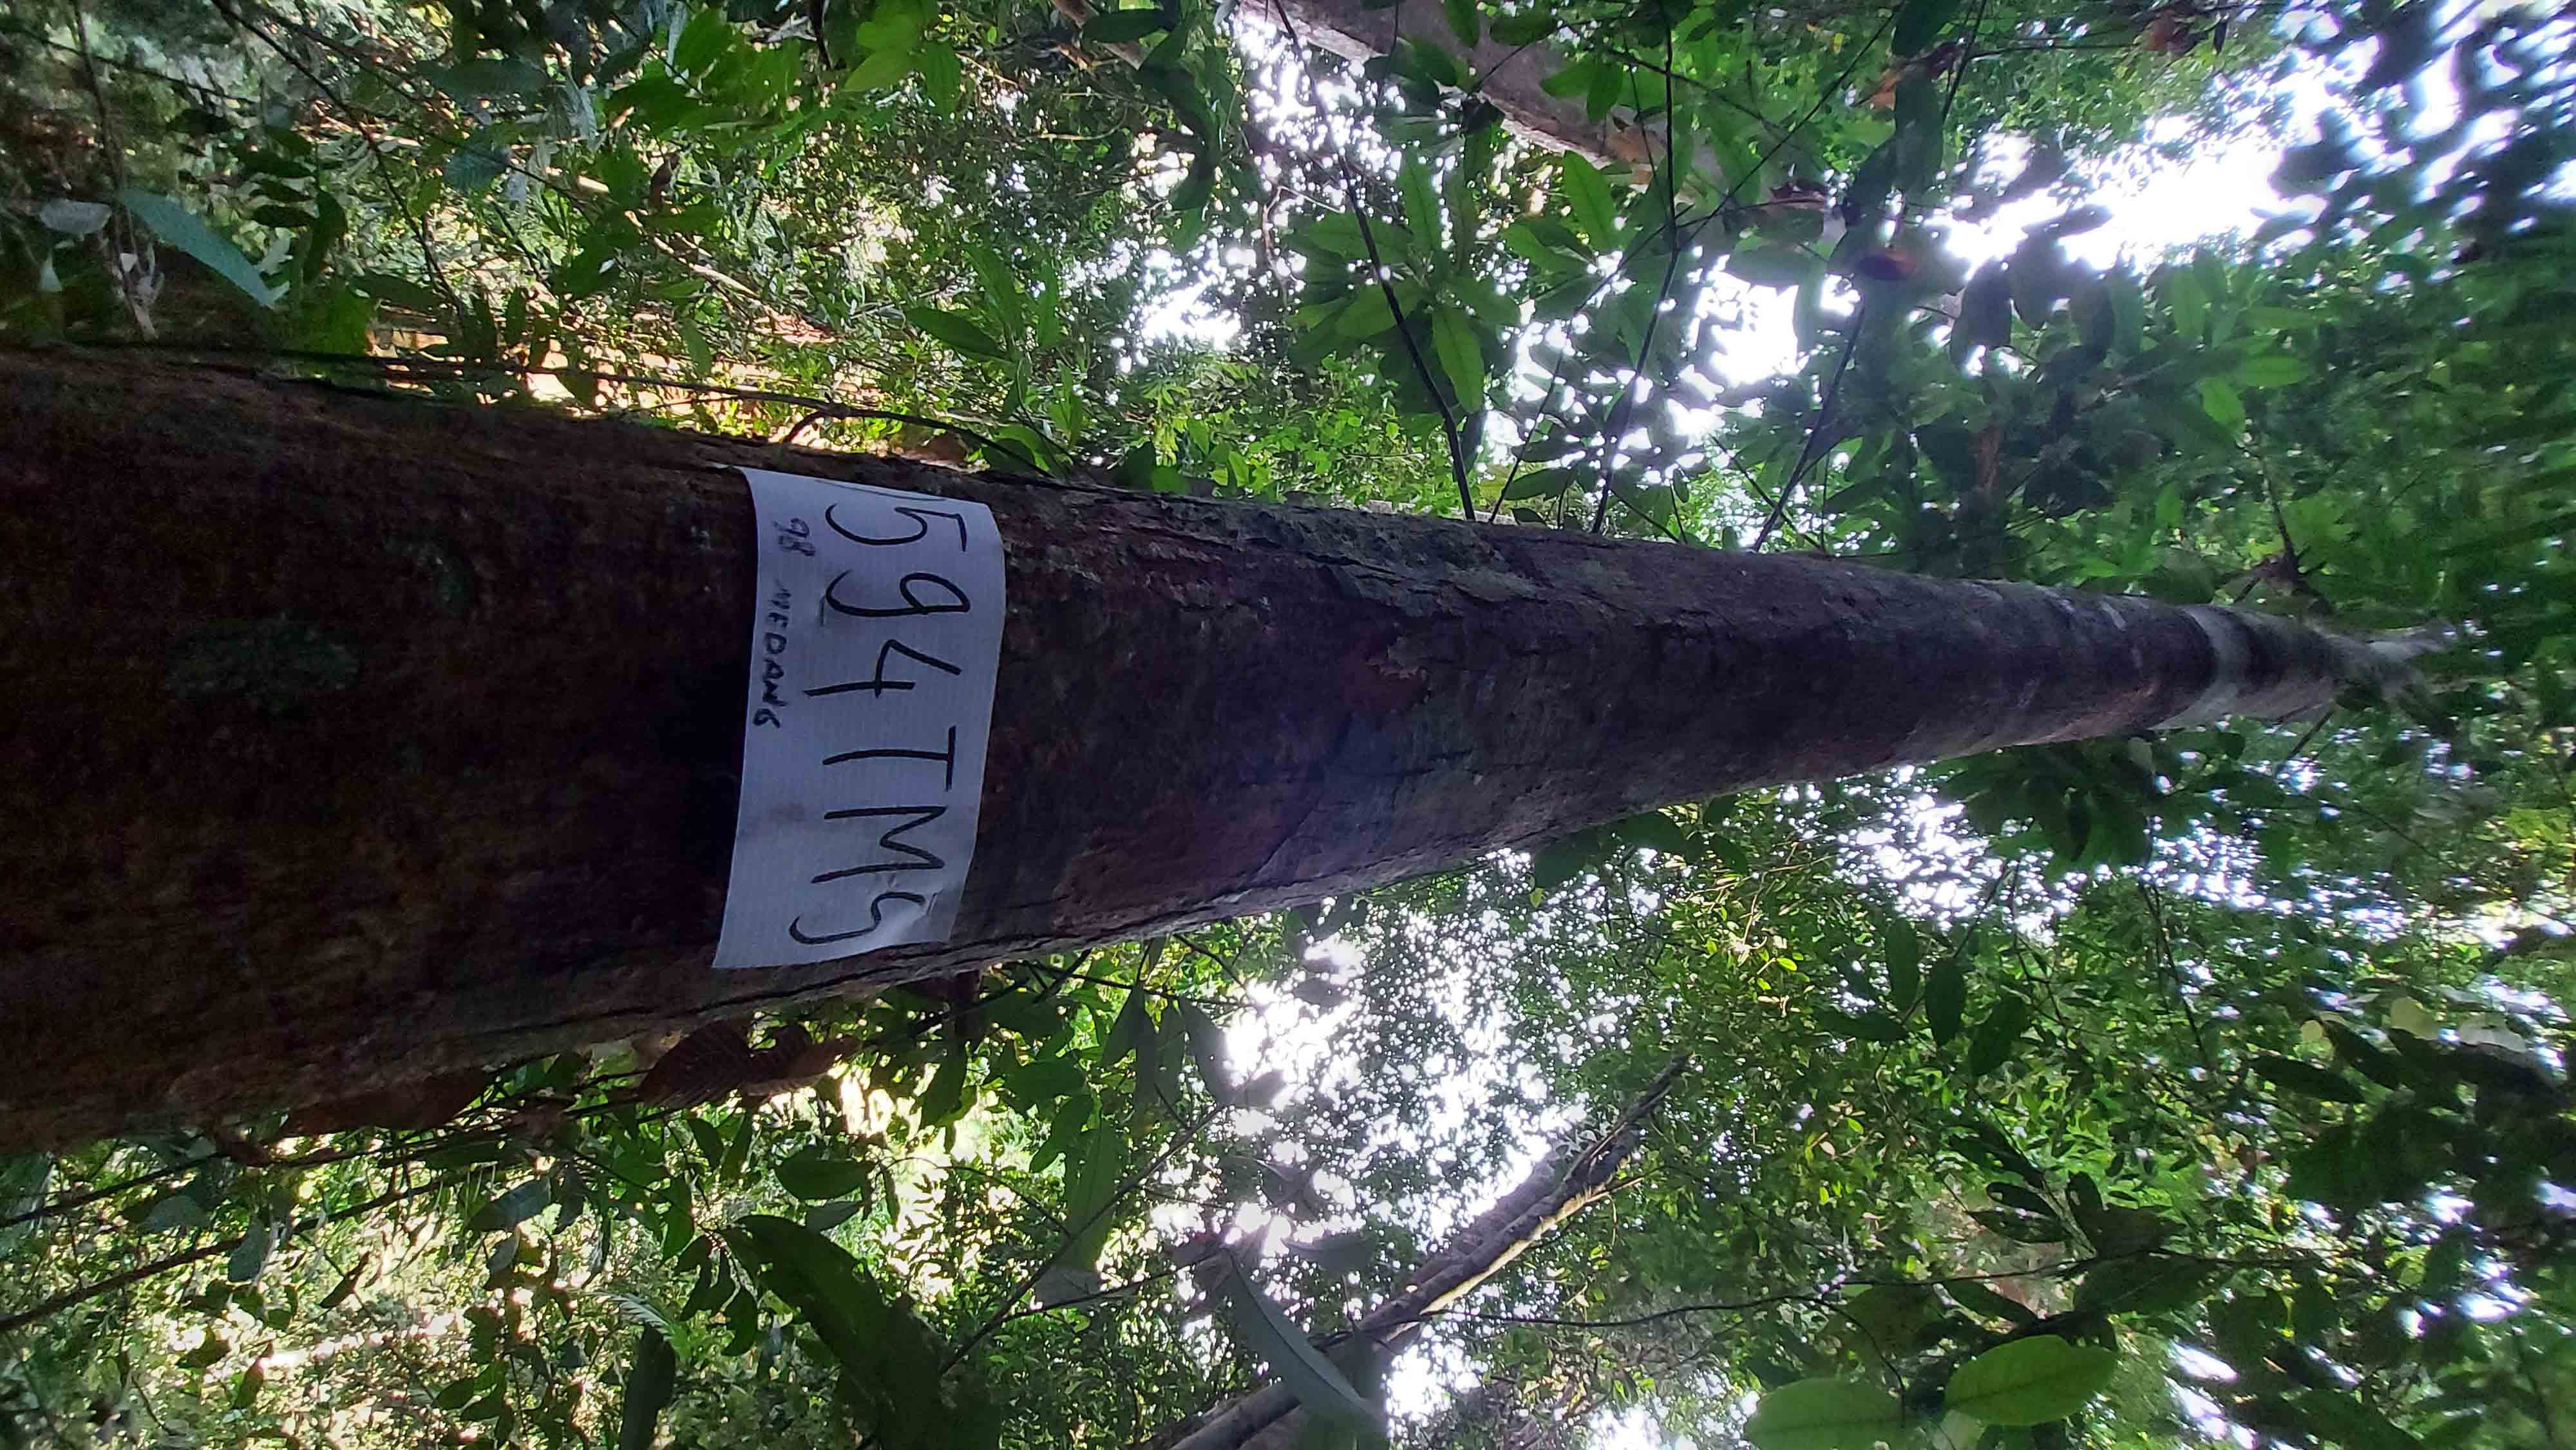 594TMS
98 MEDANG